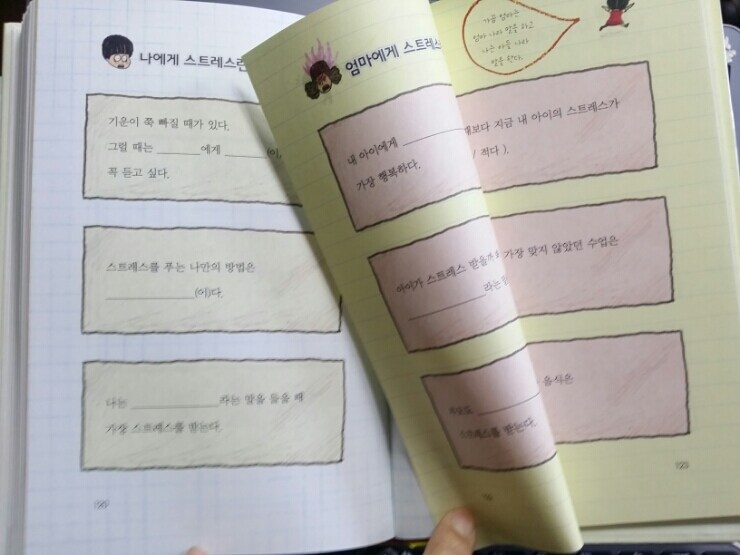 나에게 스트레스란
기운이 쭉 빠질 때가 있다.
그럴 때는 ______에게 ______(이,
꼭 듣고 싶다.
스트레스를 푸는 나만의 방법은
____________(이)다.
나는 ____________라는 말을 들을 때
가장 스트레스를 받는다.
엄마에게 스트레스
내 아이에게 ________
가장 행복하다.
아이가 스트레스 받을까 봐
__________라는
스트레스를 받는다.
가끔 엄마는
말을 하고
말을 한다.
때보다 지금 내 아이의 스트레스가
/ 적다 ).
가장 맞지 않았던 수업은
음식은